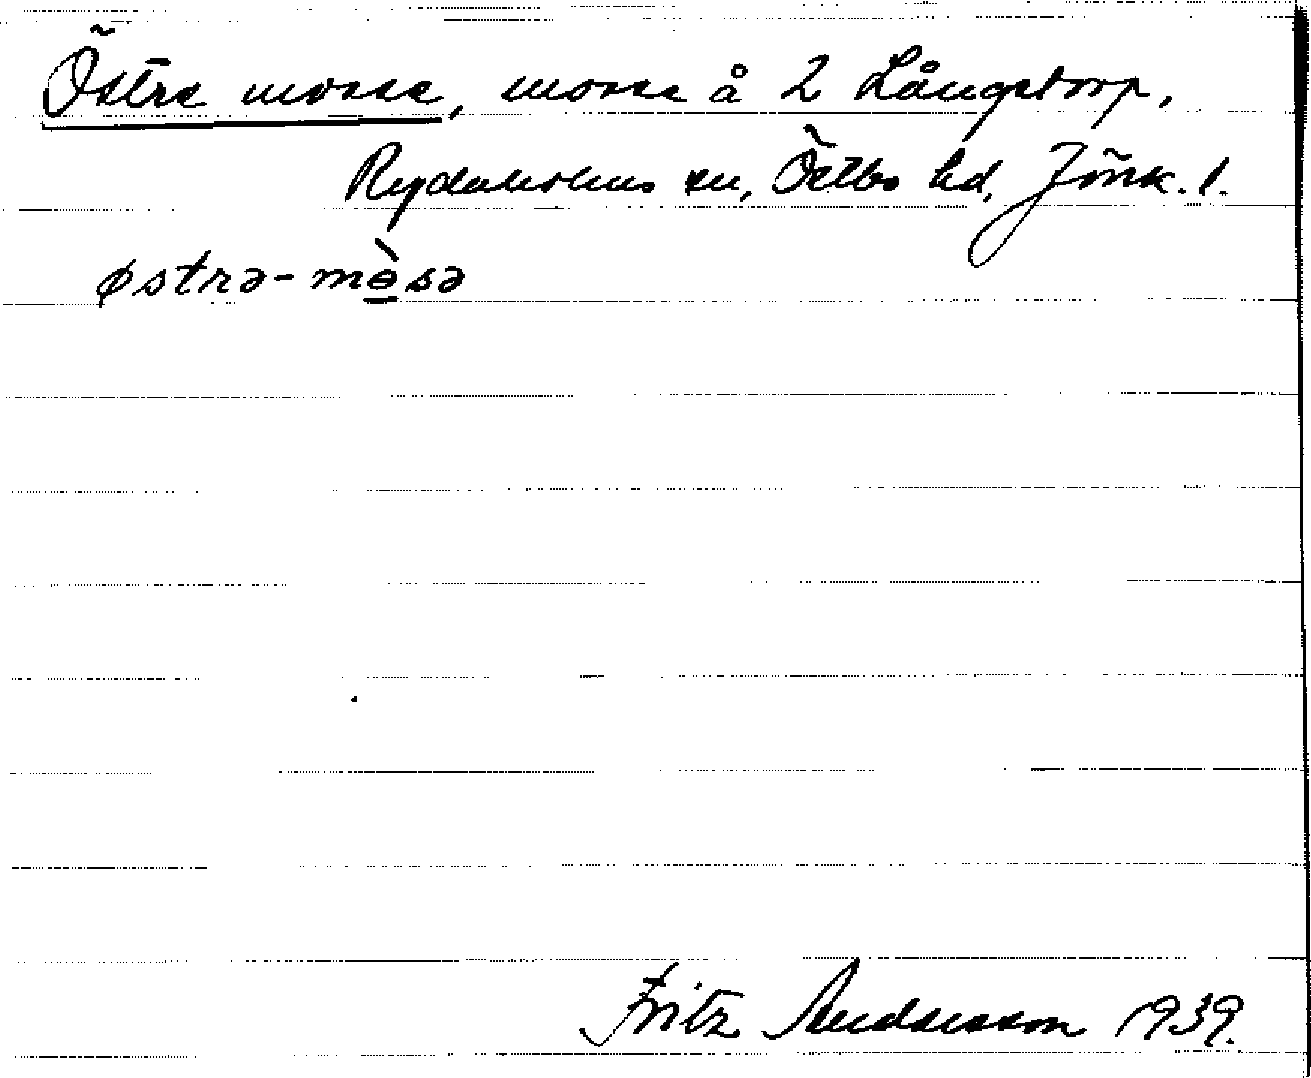 Östra mosse, mosse å 2 Långstorp,
Rydaholms sn, Östbo hd, Jönk. l.
østrə-mɵ̠̀sə
Fritz Andersson 1939.